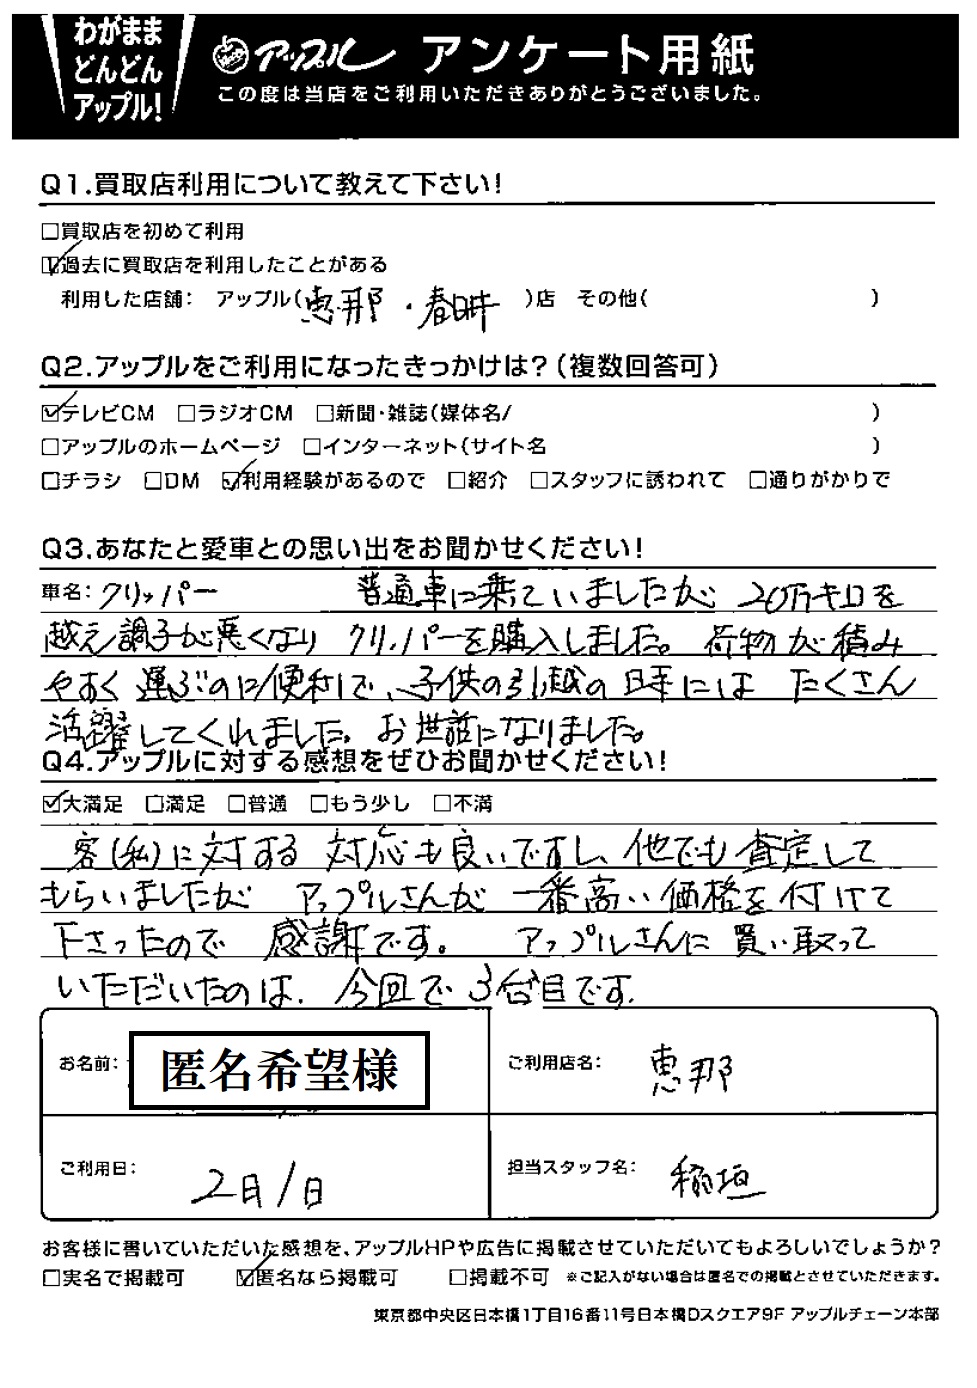 わがまま
どんどん
アップル!
アップル アンケート用紙
この度は当店をご利用いただきありがとうございました。
Q1.買取店利用について教えて下さい!
□買取店を初めて利用
☑過去に買取店を利用したことがある
利用した店舗: アップル(恵那・春日井)店 その他( )
Q2.アップルをご利用になったきっかけは?(複数回答可)
☑テレビCM □ラジオCM □新聞・雑誌(媒体名/ )
□アップルのホームページ □インターネット(サイト名 )
□チラシ □DM ☑利用経験があるので □紹介 □スタッフに誘われて □通りがかりで
Q3.あなたと愛車との思い出をお聞かせください!
車名:クリッパー 普通車に乗っていましたが 20万キロを
越え調子が悪くなり クリッパーを購入しました。荷物が積み
やすく 運ぶのに便利で、子供の引越の時には たくさん
活躍してくれました。お世話になりました。
Q4.アップルに対する感想をぜひお聞かせください!
☑大満足 □満足 □普通 □もう少し □不満
客(私)に対する 対応も良いですし、他でも査定して
もらいましたが アップルさんが 一番高い価格を付けて
下さったので 感謝です。 アップルさんに 買い取って
いただいたのは、今回で 3台目です。
お名前: 匿名希望様
ご利用店名: 恵那
ご利用日: 2月1日
担当スタッフ名: 稲垣
お客様に書いていただいた感想を、アップルHPや広告に掲載させていただいてもよろしいでしょうか?
□実名で掲載可 ☑匿名なら掲載可 □掲載不可 ※ご記入がない場合は匿名での掲載とさせていただきます。
東京都中央区日本橋1丁目16番11号日本橋Dスクエア9F アップルチェーン本部